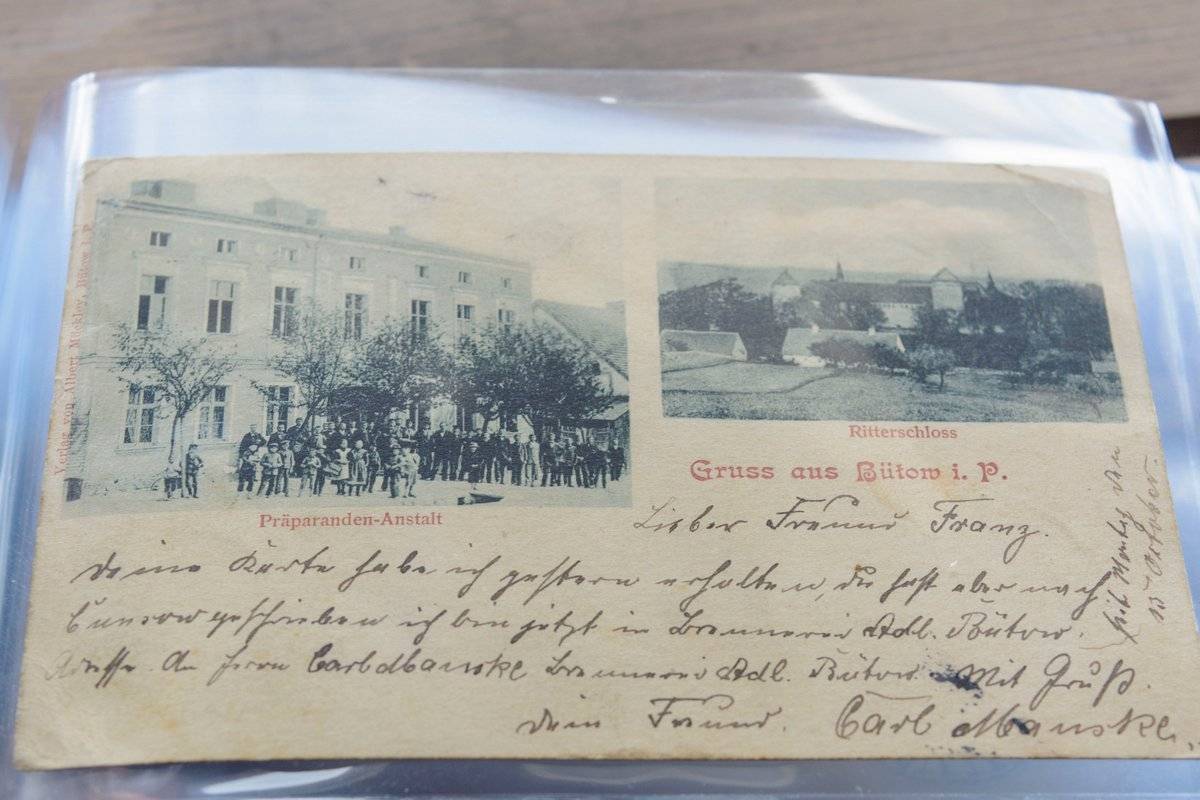 Verlag von Albert Mückley, Bütow i. P.
Präparanden-Anstalt
Ritterschloss
Gruss aus Bütow i. P.
Lieber Freund Franz.
Deine Karte habe ich gestern erhalten, du hast aber nach
geschrieben ich bin jetzt in Brennerei Adl. Bütow.
Adresse. An Herrn Carl Manske Brennerei Adl. Bütow. Mit Gruß.
Dein Freund. Carl Manske.
October.